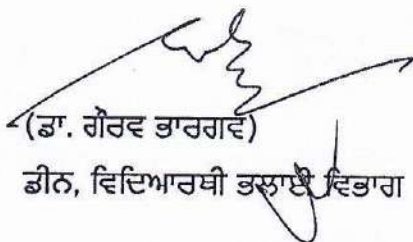 (ਡਾ. ਗੌਰਵ ਭਾਰਗਵ)
ਡੀਨ, ਵਿਦਿਆਰਥੀ ਭਲਾਈ ਵਿਭਾਗ